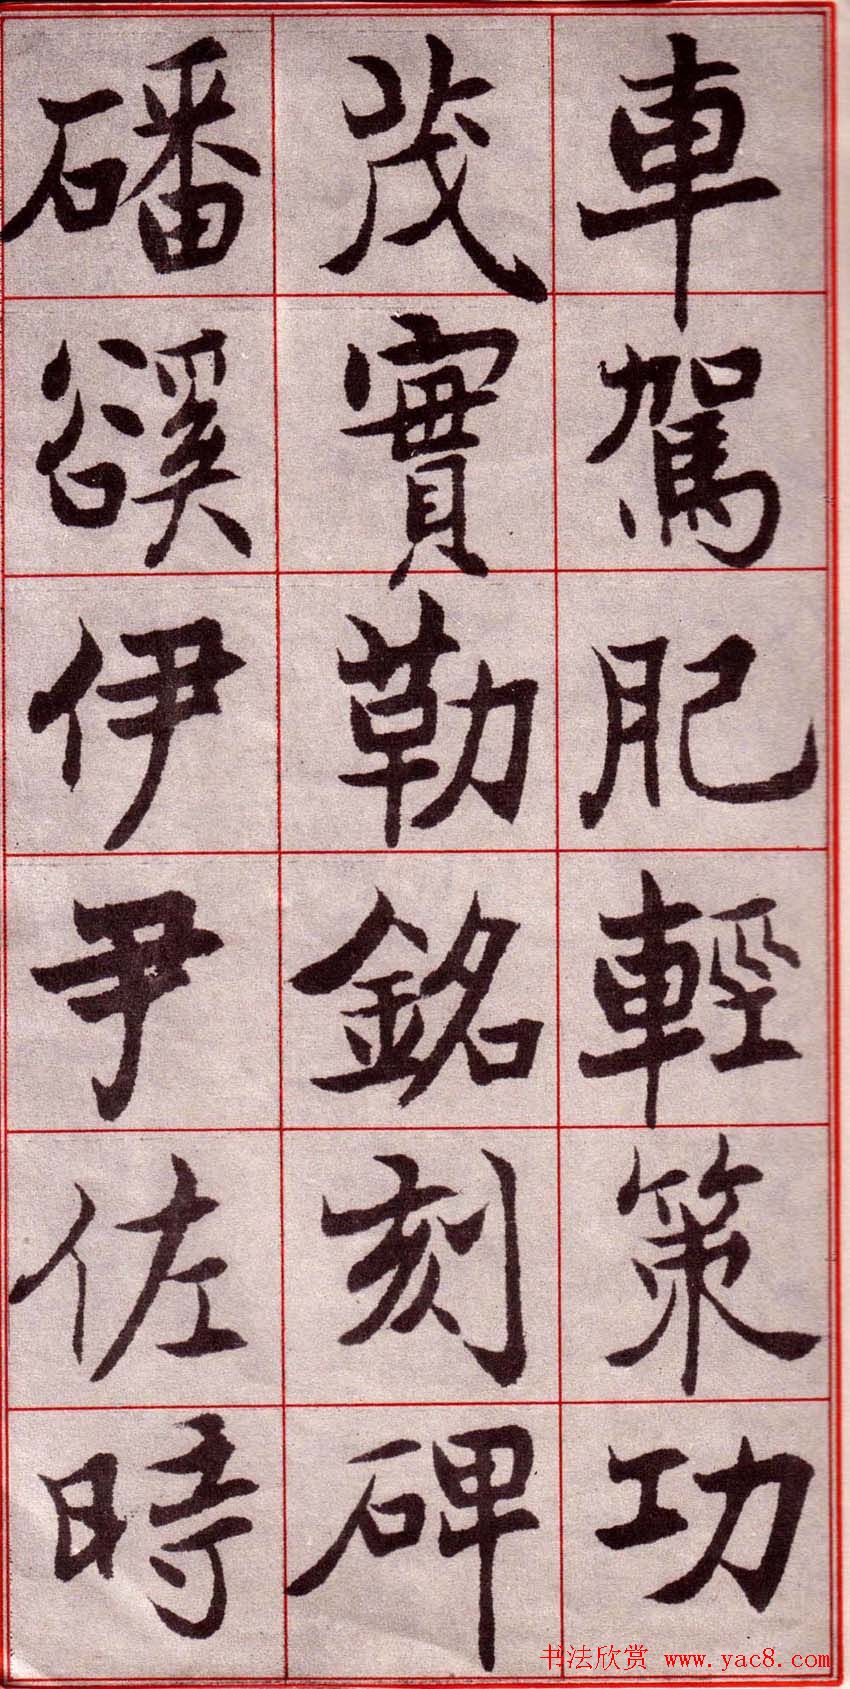 車駕肥輕策功
茂實勒銘刻碑
磻谿伊尹佐時
书法欣赏 www.yac8.com